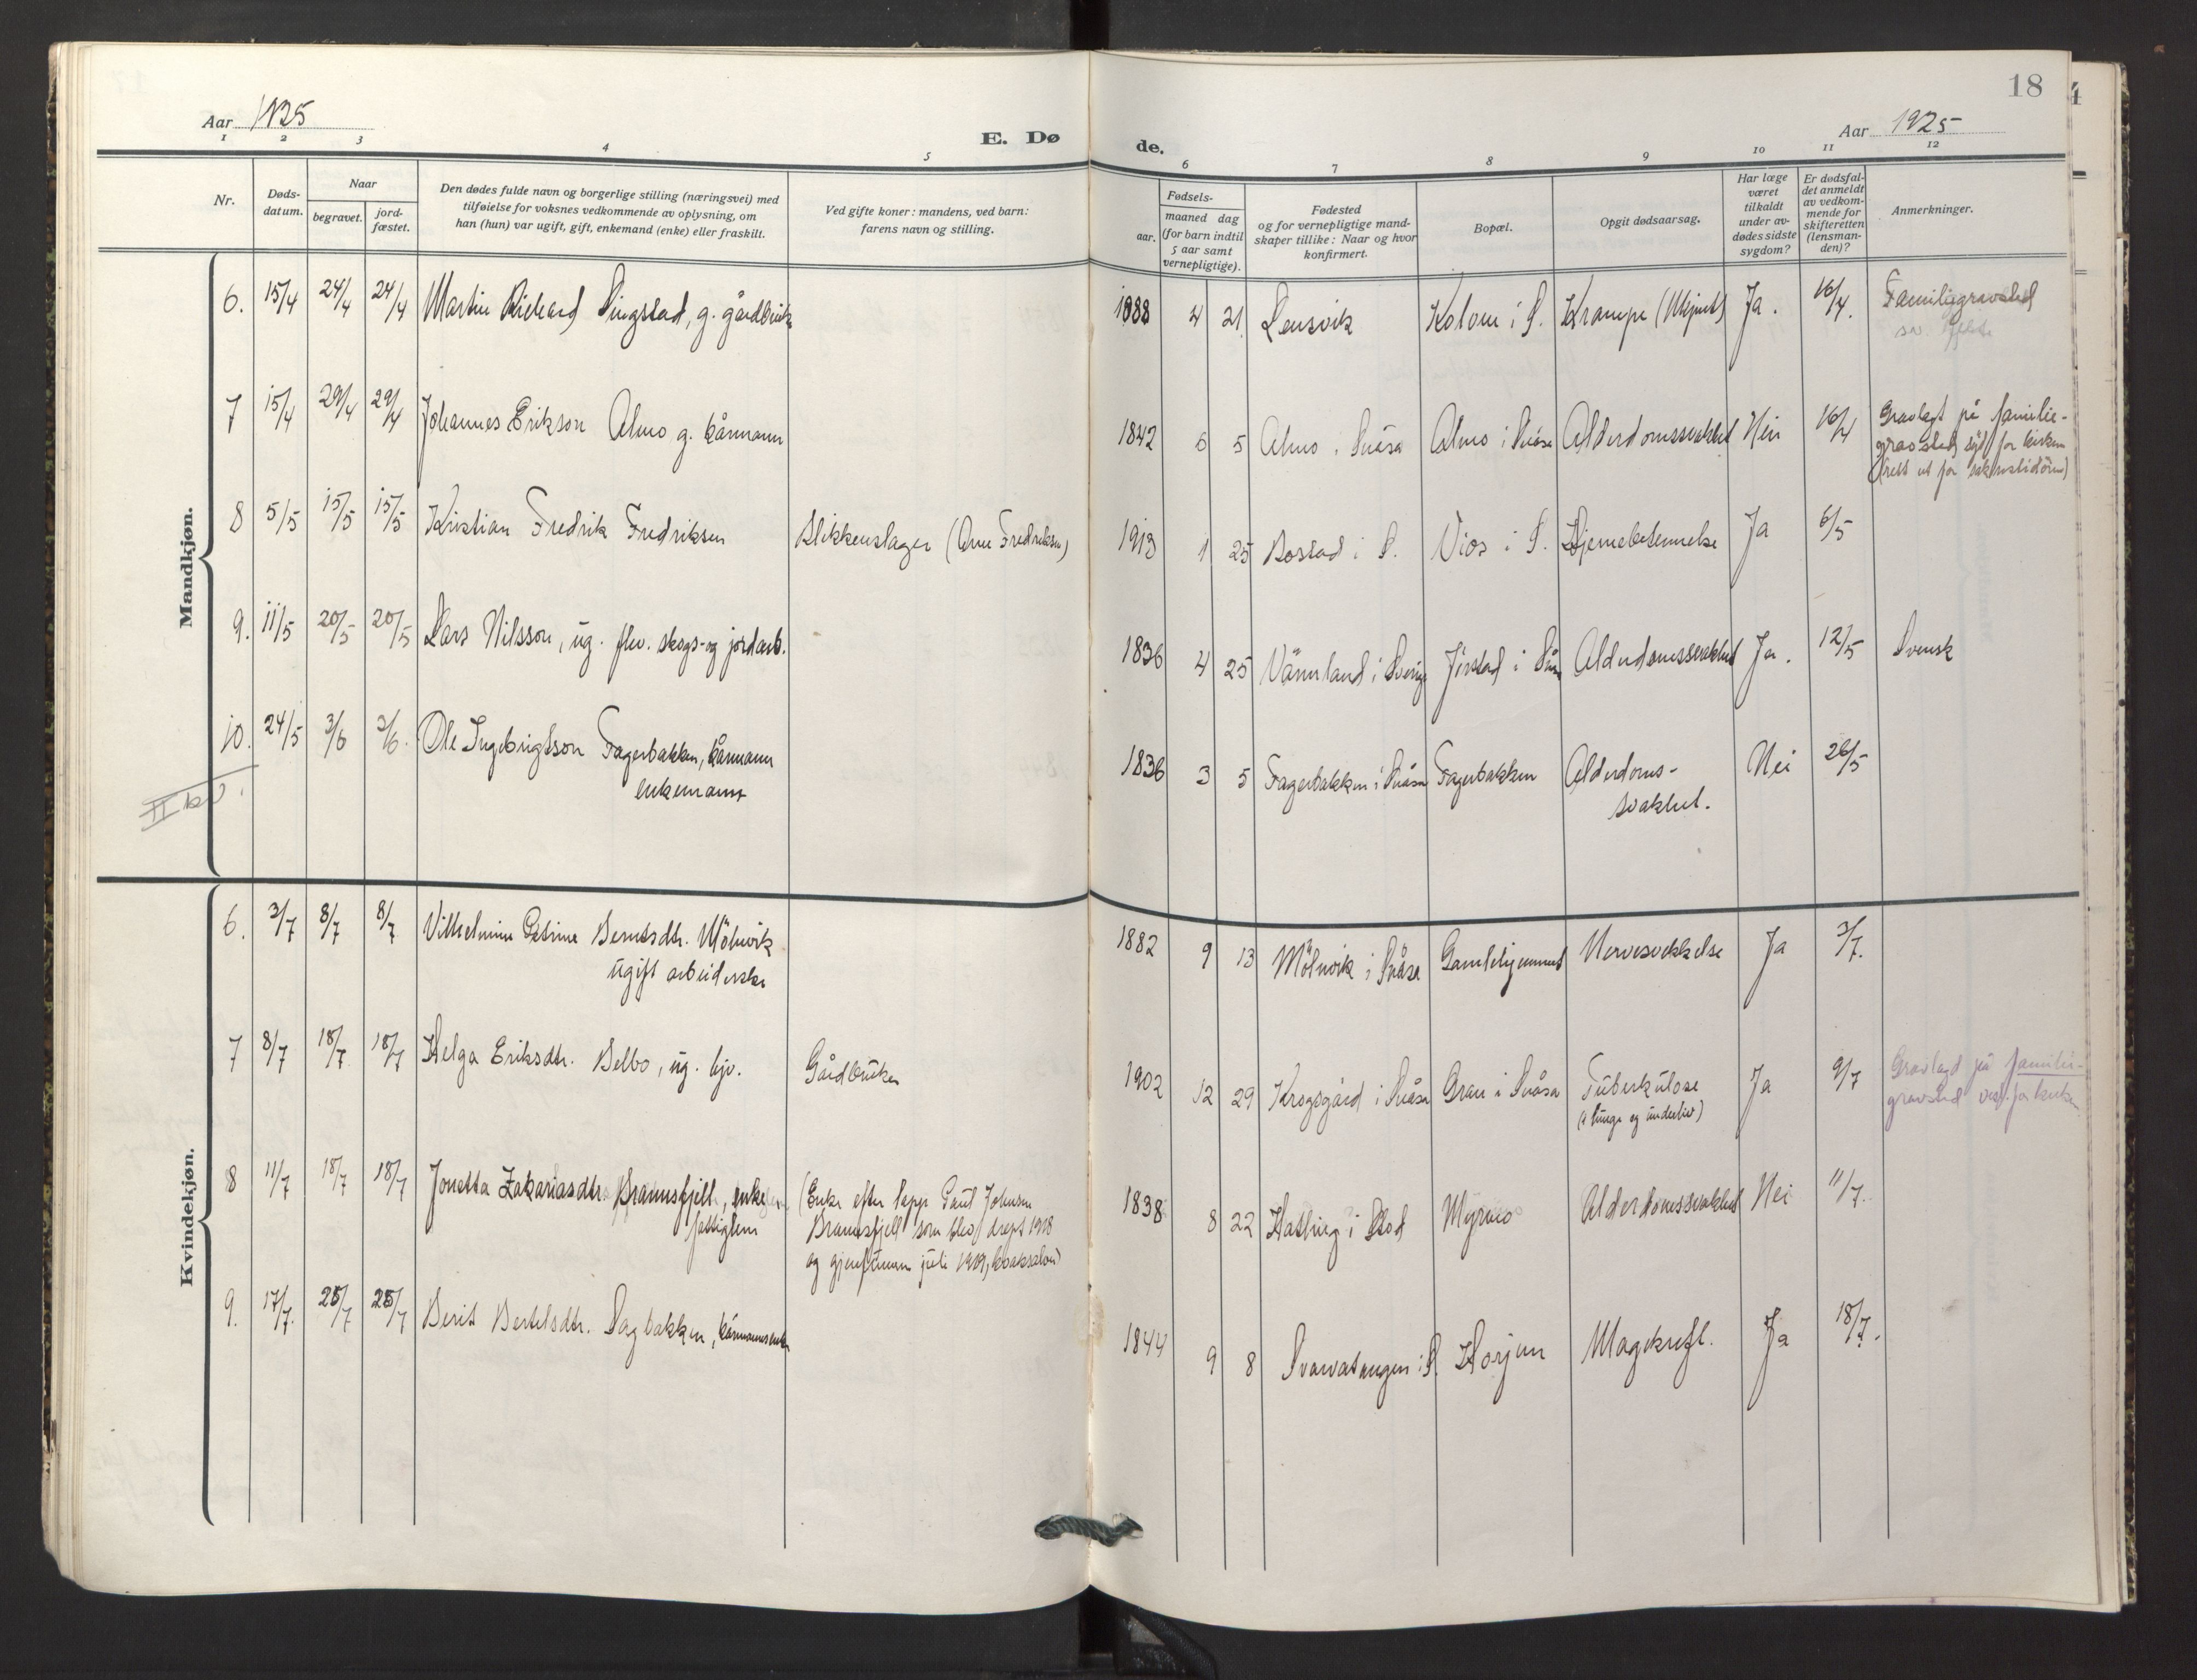 18
Aar 1925
E. Døde.
Aar 1925
1 2 3 4 5 6 7 8 9 10 11 12
Nr.
Døds-
datum.
Naar
begravet.
jord-
fæstet.
Den dødes fulde navn og borgerlige stilling (næringsvei) med
tilføielse for voksnes vedkommende av oplysning, om
han (hun) var ugift, gift, enkemand (enke) eller fraskilt.
Ved gifte koner: mandens, ved barn:
farens navn og stilling.
Fødsels-
aar.
maaned dag
(for barn indtil
5 aar samt
vernepligtige).
Fødested
og for vernepligtige mand-
skaper tillike: Naar og hvor
konfirmert.
Bopæl.
Opgit dødsaarsag.
Har læge
været
tilkaldt
under av-
dødes sidste
sygdom?
Er dødsfal-
det anmeldt
av vedkom-
mende for
skifteretten
(lensman-
den)?
Anmerkninger.
Mandkjøn.
6. 15/4 24/4 24/4 Martin Richard Singstad, g. gårdbruk 1888 4 21 Lensvik Kolom i S. Krampe Ja. 16/4. Familiegravsted
7 15/4 29/4 29/4 Johannes Erikson Almo g. kårmann 1842 6 5 Almo i Snåsa Almo i Snåsa Alderdomssvakhet Nei 16/4 Gravlagt på familie-
gravsted syd for kirken
(rett ut for sakristidøren)
8 5/5 15/5 15/5 Kristian Fredrik Fredriksen Blikkenslager (Arne Fredriksen) 1913 1 25 Bostad i S. Vios i S. Hjernebetennelse Ja 6/5
9. 11/5 20/5 20/5 Lars Nilsson, ug. flw. skogs- og jordarb. 1836 4 25 Värmland i Sverig Jørstad i Snåsa Alderdomssvakhet Ja. 12/5 Svensk
10. 24/5 3/6 3/6. Ole Ingebrigtson Fagerbakken, kårmann
enkemann 1836 3 5 Fagerbakken i Snåsa Fagerbakken Alderdoms-
svakhet. Nei 26/5
II kv.
Kvindekjøn.
6. 3/7 8/7 8/7 Vilhelmine Petrine Berntsdtr. Mölnvik
ugift arbeiderske 1882 9 13 Mölnvik i Snåsa Gamlehjemmet Nervesvekkelse Ja 3/7.
7 8/7 18/7 18/7 Helga Eriksdtr. Belbo, ug. hjv. Gårdbruker 1902 12 29 Krogsgård i Snåsa Gran i Snåsa Tuberkulose
(i lunge og underliv) Ja 9/7 Gravlagd på familie-
gravsted vest for kirken
8 11/7 18/7 18/7 Jonetta Zakariasdtr. Brannsfjell, enke
fattiglem (Enke efter lapp Paul Johnsen
Brannsfjell som blev drept 1918
og gjenfunnen juli 1919, ) 1838 8 22 Hatling i Stod Myrmo Alderdomssvakhet Nei 11/7.
9. 17/7. 25/7 25/7 Berit Bertelsdtr. Sagbakken, kårmannsenke 1844 9 8 Svarvatangen i S. Horjem Magekreft. Ja 18/7.